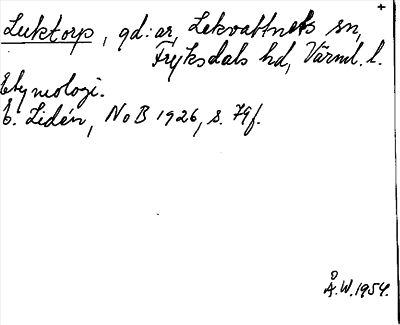 +
Luktorp, gd:ar, Lekvattnets sn,
Fryksdals hd, Värml. l.
Etymologi.
E. Lidén, NoB 1926, s. 79f.
Å.W. 1954.